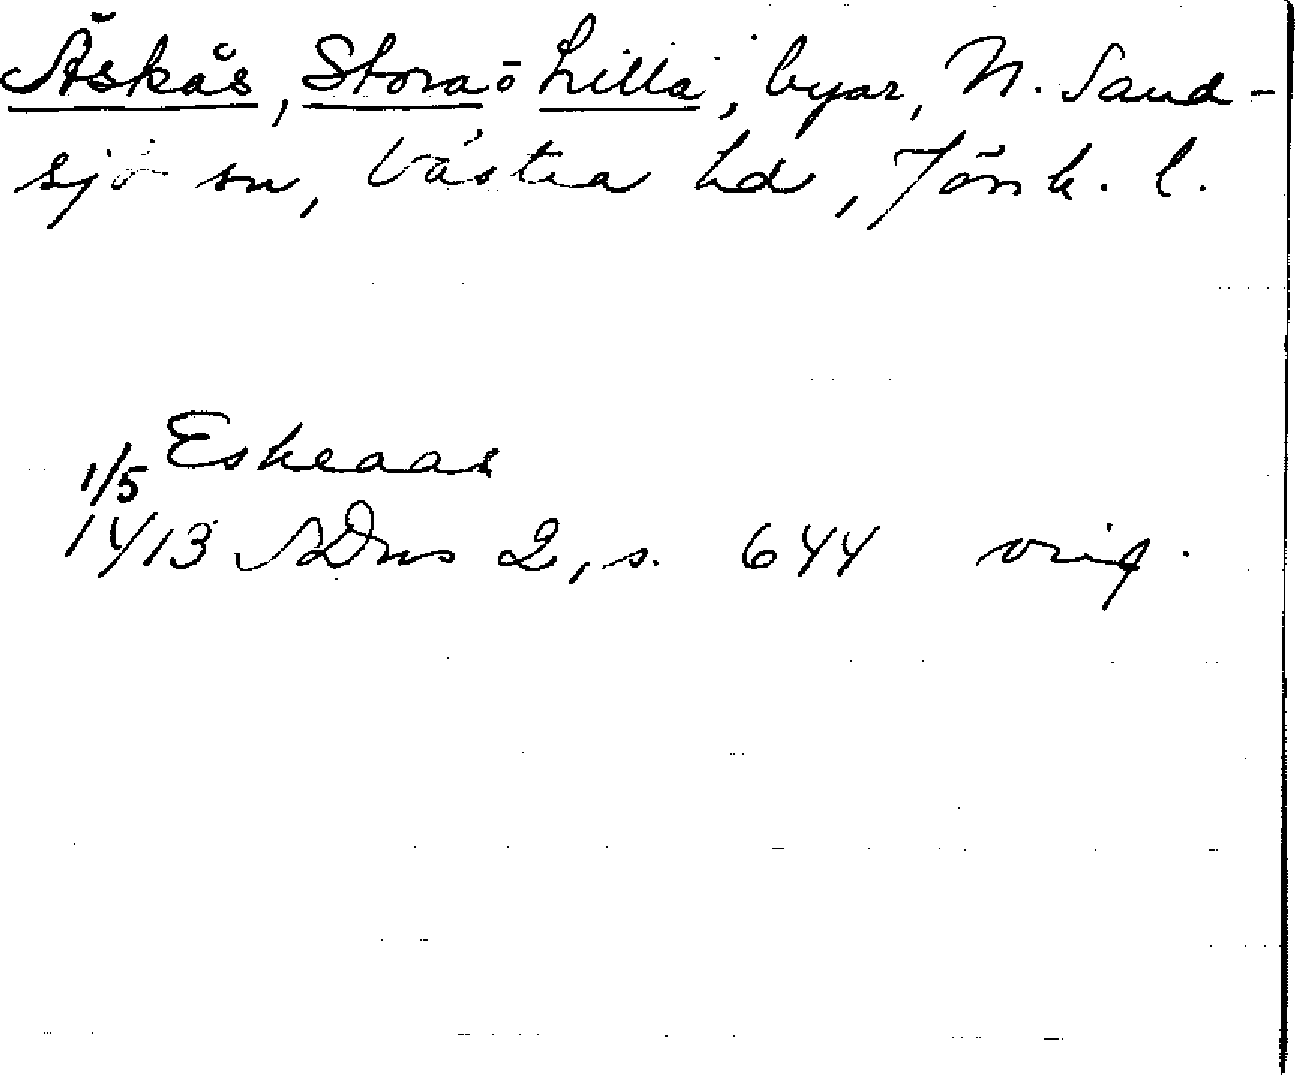 Äskås, Stora o Lilla, byar, N. Sand-
sjö sn, Västra hd, Jönk. l.
Eskeaas
1/5
1413 SDns 2, s. 644 orig.